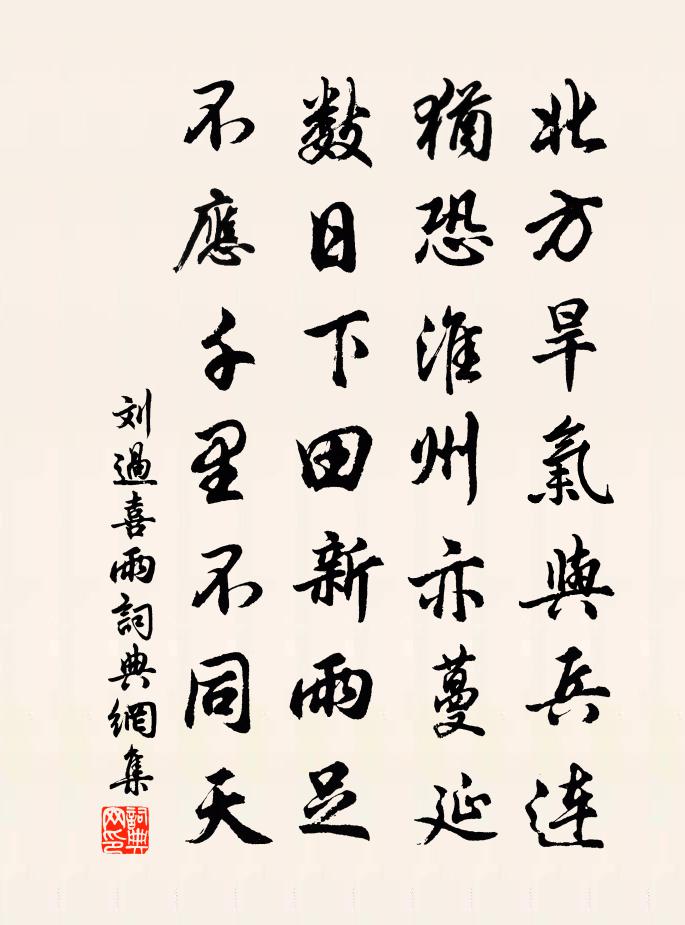 北方旱氣與兵連
猶恐淮州亦蔓延
数日下田新雨足
不應千里不同天
刘過喜雨詞典網集
詞典網印